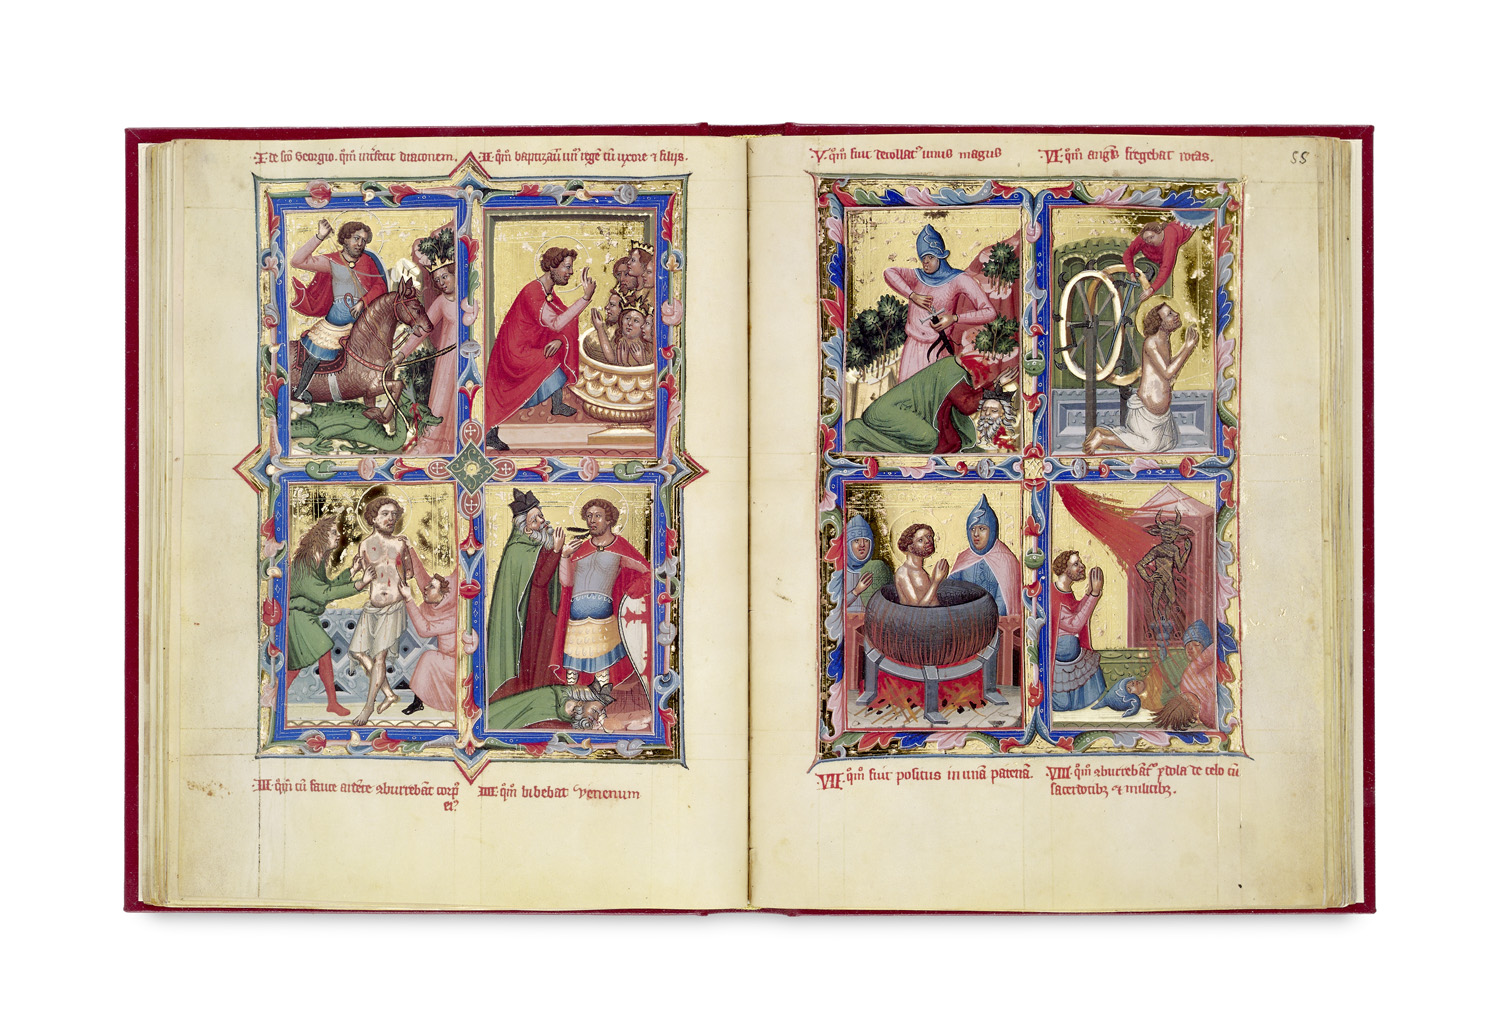 I. de sc̄o Georgio. qm̄ int̄fecit draconem.
II. qm̄ baptizauit regē cū uxore ⁊ filijs.
III. qm̄ cū face ardēte ꝯburrebāt corpꝰ
eiꝰ
IIII. qm̄ bibebat venenum
V. qm̄ fuit decollatꝰ unus magus
VI. qm̄ angl̄s fregebat rotas.
55
VII. qm̄ fuit positus in unā patenā.
VIII. qm̄ ꝯburrebāt ydola de celo cū
sacerdotibꝫ ⁊ militibꝫ.